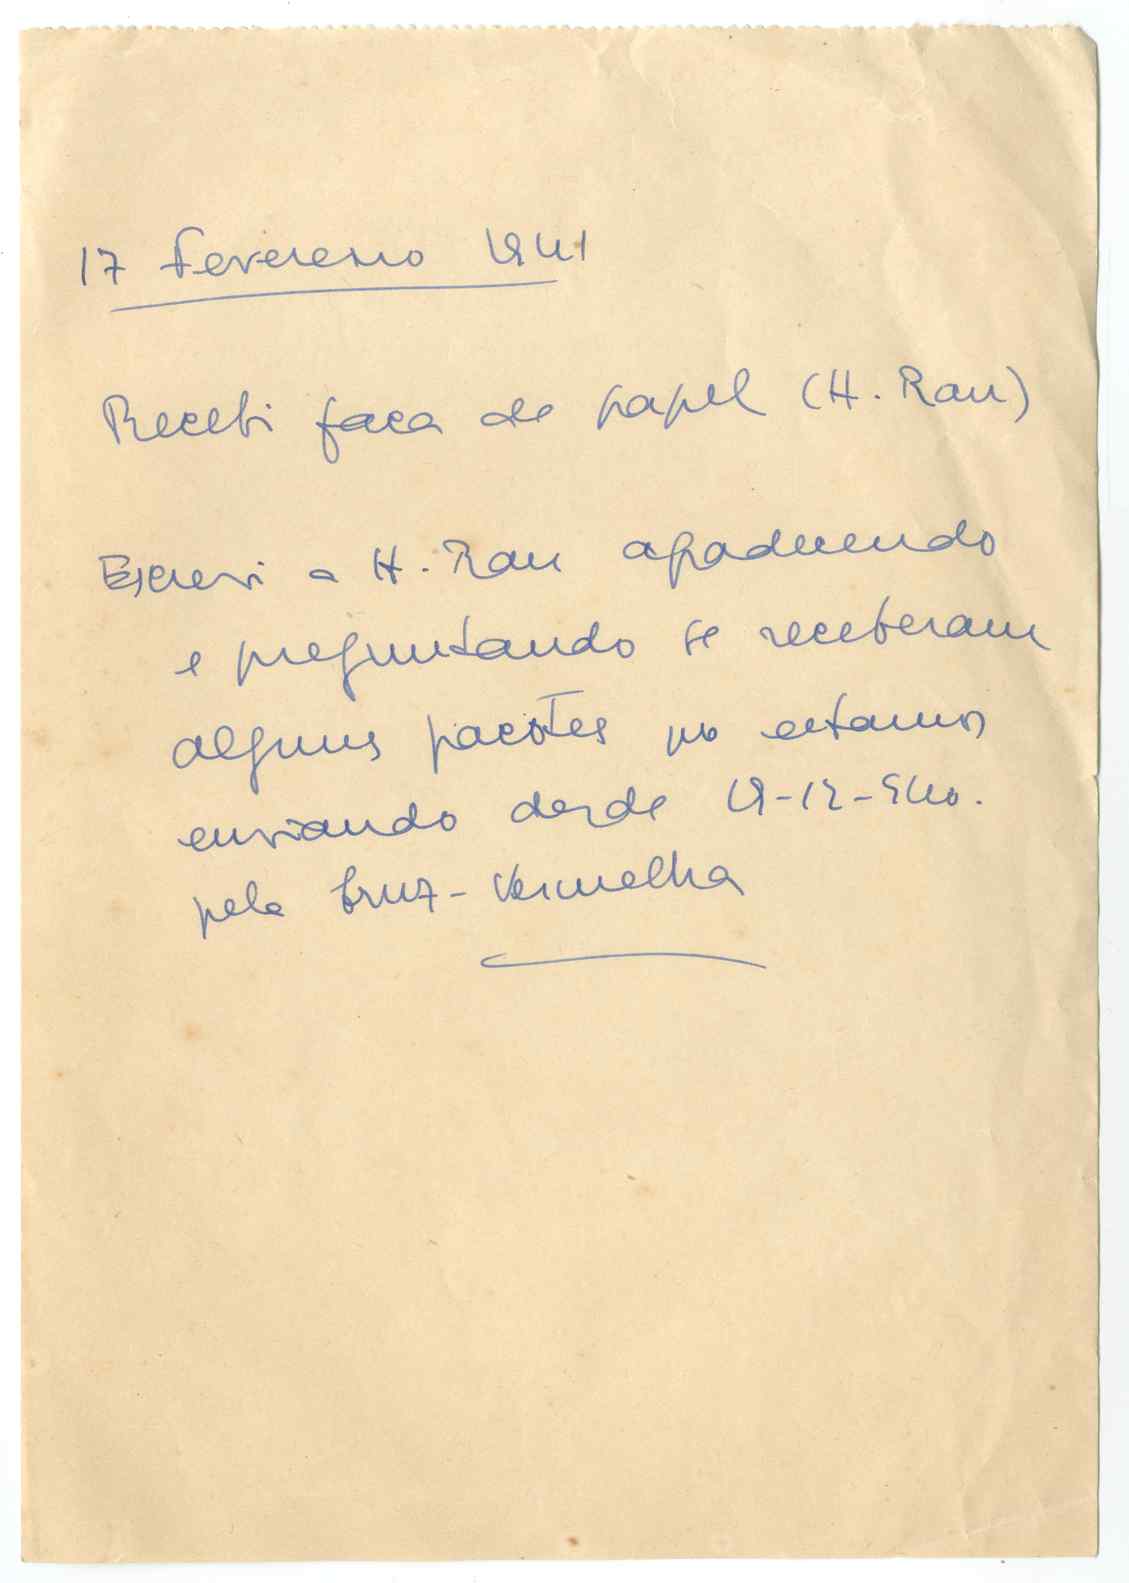 17 Fevereiro 1941
Recebi faca de papel (H. Rau)
Escrevi a H. Rau agradecendo
e preguntando se receberam
alguns pacotes que estamos
enviando desde 19-12-940.
pela Cruz-Vermelha